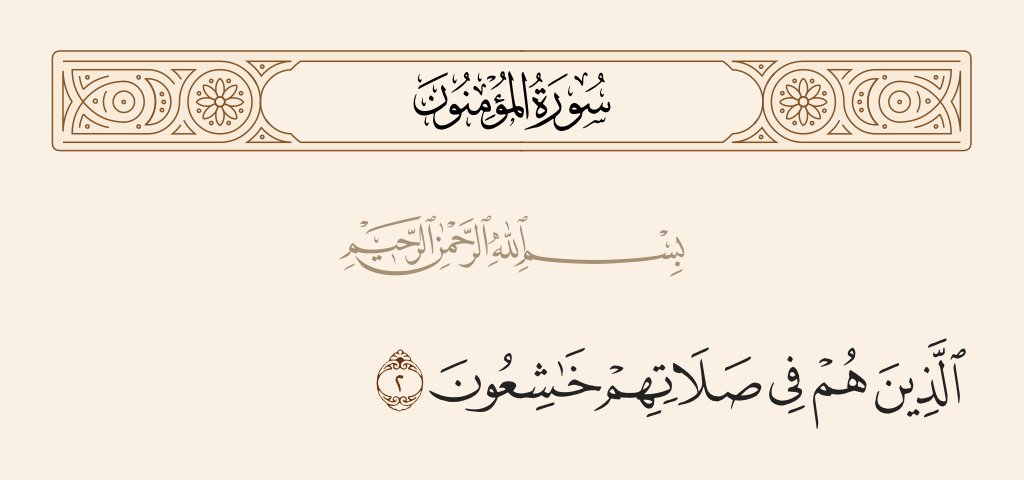 سُورَةُ المُؤْمِنُونَ
بِسْمِ ٱللَّهِ ٱلرَّحْمَٰنِ ٱلرَّحِيمِ
ٱلَّذِينَ هُمْ فِى صَلَاتِهِمْ خَٰشِعُونَ ٢